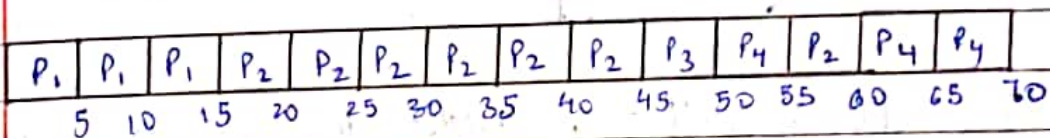 P₁ P₁ P₁ P₂ P₂ P₂ P₂ P₂ P₂ P₃ P₄ P₂ P₄ P₄
5 10 15 20 25 30 35 40 45 50 55 60 65 70